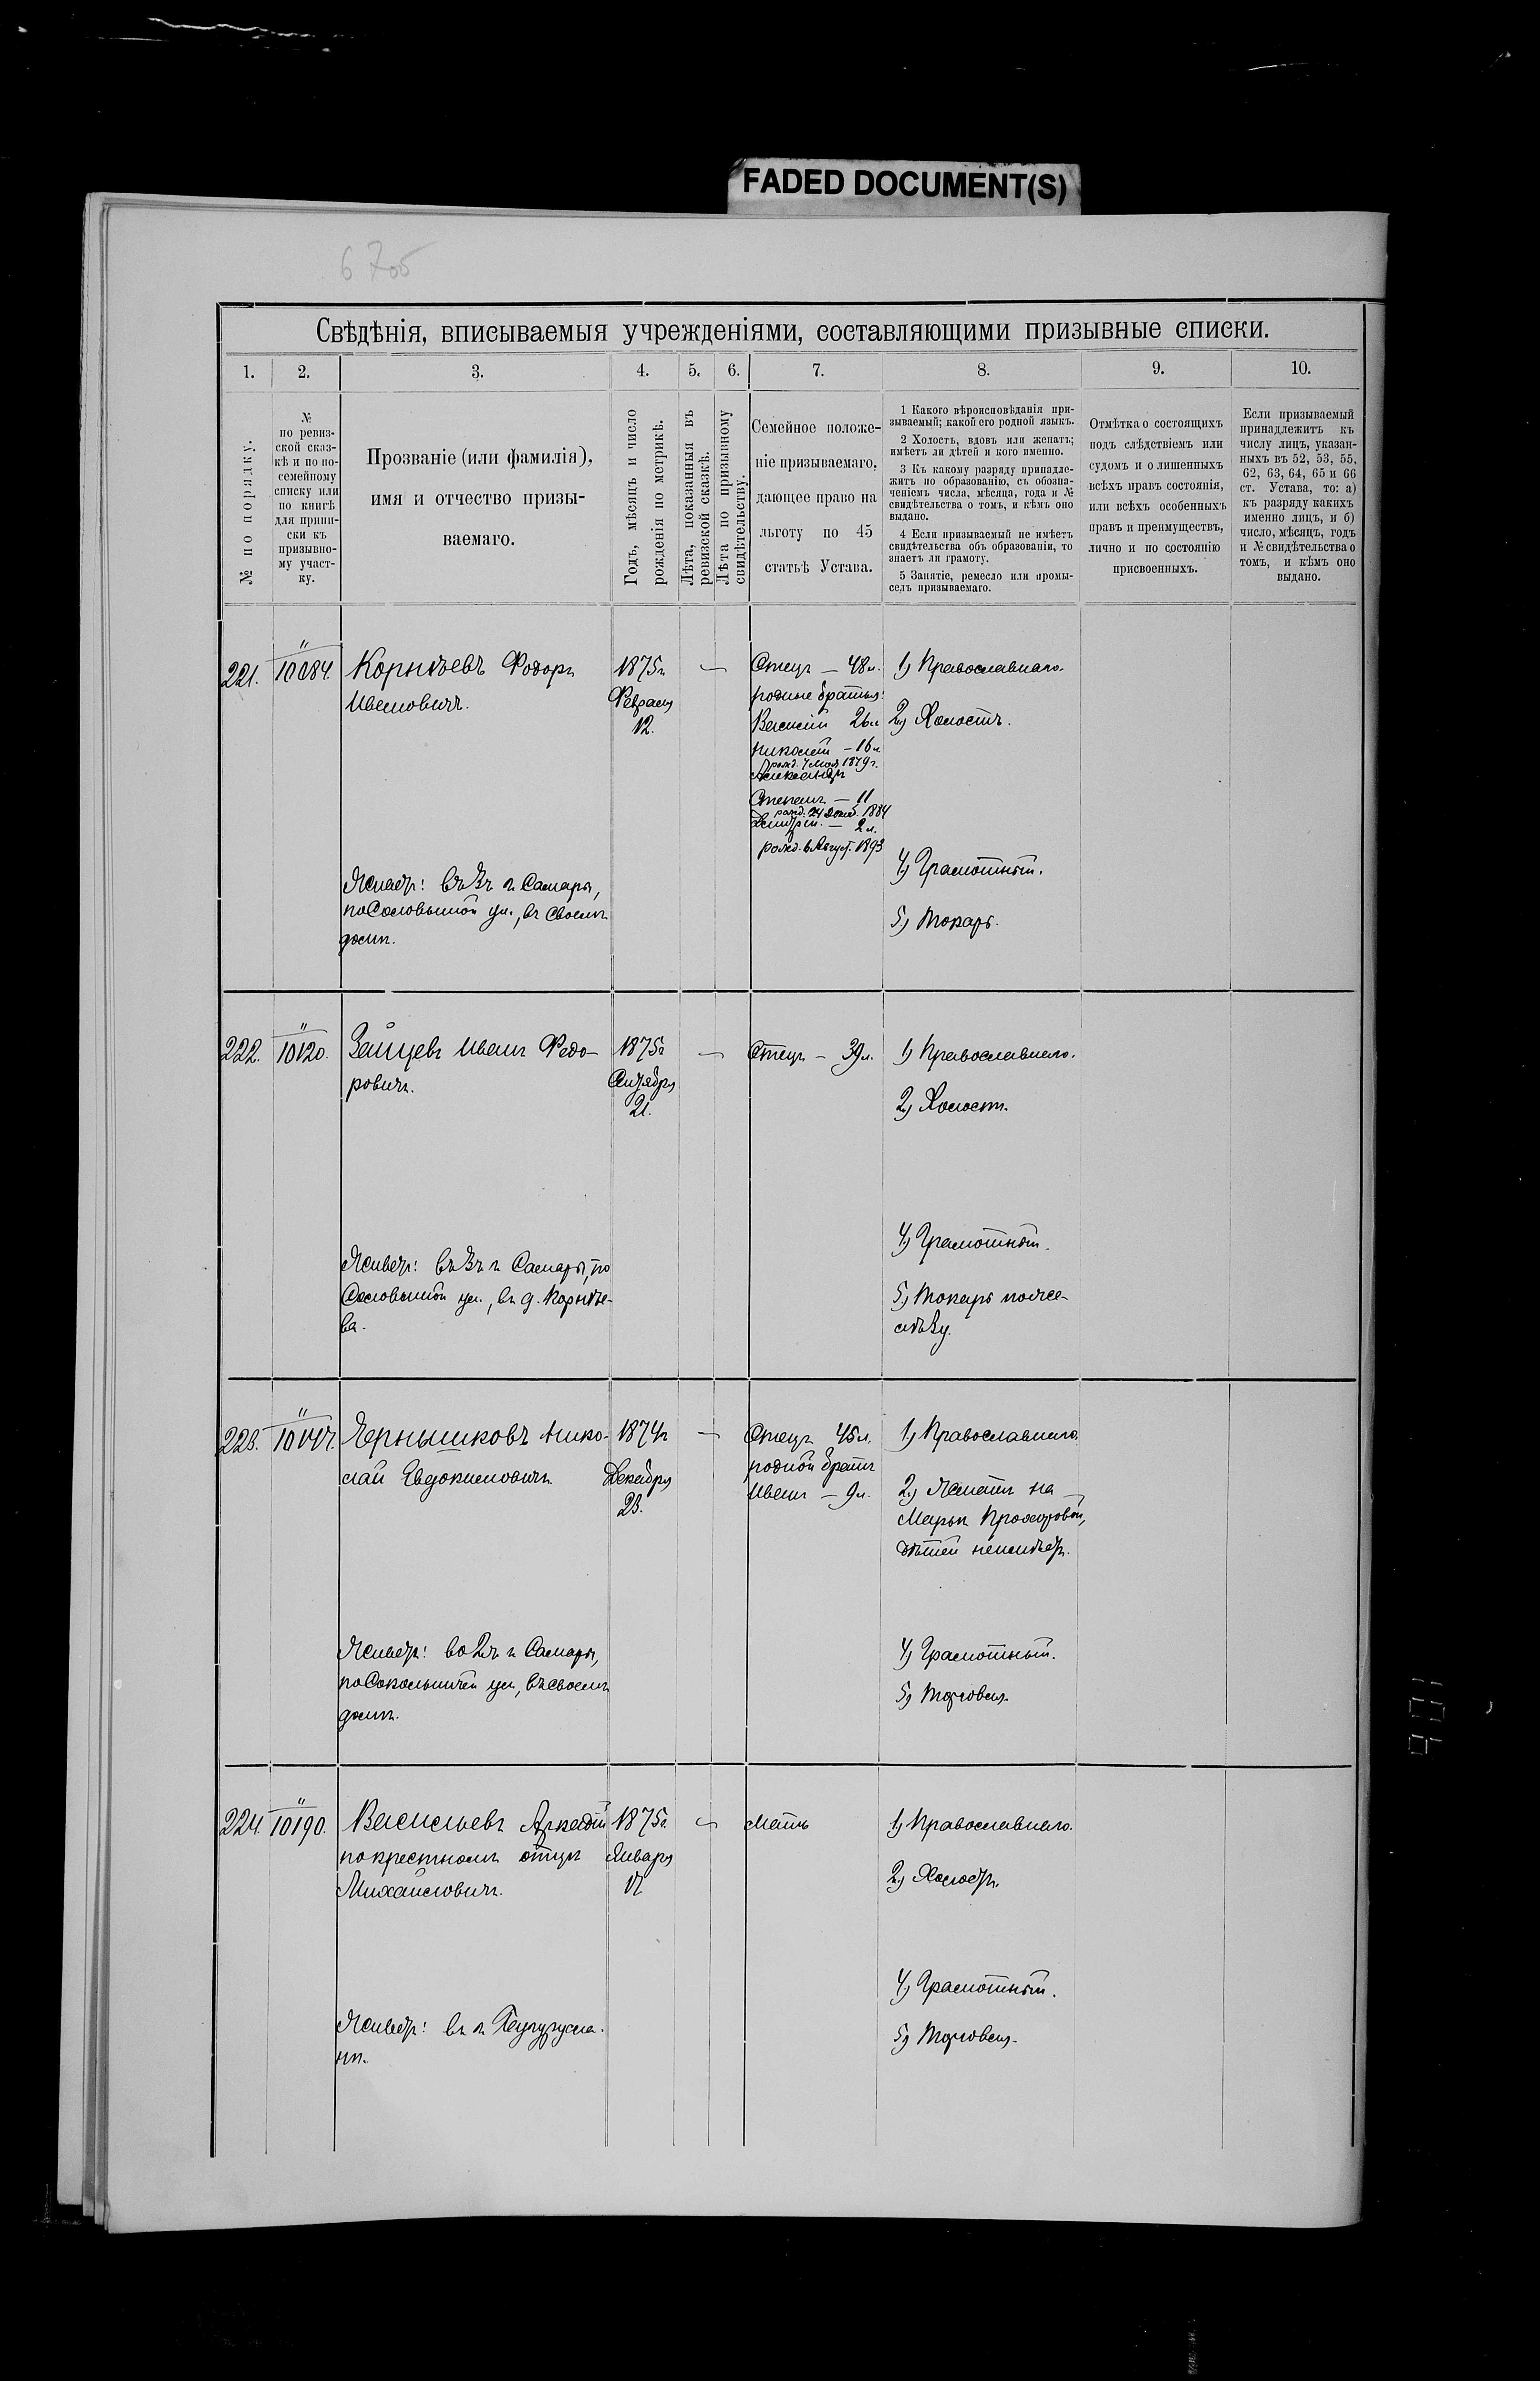 FADED DOCUMENT(S)
6705
Свѣдѣнія, вписываемыя учрежденіями, составляющими призывные списки.
1.
2.
3.
4.
5.
6.
7.
8.
9.
10.
№ по порядку.
№
по ревиз-
ской сказ-
кѣ и по по-
семейному
списку или
по книгѣ
для припи-
ски къ
призывно-
му участ-
ку.
Прозваніе (или фамилія),
имя и отчество призы-
ваемаго.
Годъ, мѣсяцъ и число
рожденія по метрикѣ.
Лѣта, показанныя въ
ревизской сказкѣ.
Лѣта по призывному
свидѣтельству.
Семейное положе-
ніе призываемаго,
дающее право на
льготу по 45
статьѣ Устава.
1 Какого вѣроисповѣданія при-
зываемый; какой его родной языкъ.
2 Холостъ, вдовъ или женатъ;
имѣетъ ли дѣтей и кого именно.
3 Къ какому разряду принадле-
житъ по образованію, съ обозна-
ченіемъ числа, мѣсяца, года и №
свидѣтельства о томъ, и кѣмъ оно
выдано.
4 Если призываемый не имѣетъ
свидѣтельства объ образованіи, то
знаетъ ли грамоту.
5 Занятіе, ремесло или промы-
селъ призываемаго.
Отмѣтка о состоящихъ
подъ слѣдствіемъ или
судомъ и о лишенныхъ
всѣхъ правъ состоянія,
или всѣхъ особенныхъ
правъ и преимуществъ,
лично и по состоянію
присвоенныхъ.
Если призываемый
принадлежитъ къ
числу лицъ, указан-
ныхъ въ 52, 53, 55,
62, 63, 64, 65 и 66
ст. Устава, то: а)
къ разряду какихъ
именно лицъ, и б)
число, мѣсяцъ, годъ
и № свидѣтельства о
томъ, и кѣмъ оно
выдано.
221.
"
10084.
Корнѣевъ Ѳедоръ
Ивановичъ.
1875г
Февраля
12.
Отецъ — 48л.
родные братья:
Василій 26л
Николай — 16л.
рожд. 7 Мая 1879г.
Александръ
Степанъ — 11
рожд. 24 1884
Дмитрій. — 2л.
рожд. 6 Август. 1893
1) Православнаго.
2) Холостъ.
4) Грамотный.
5) Токарь.
Живетъ: въ 3ч г. Самары,
по Соловьиной ул., въ своемъ
домѣ.
222.
"
10120.
Зайцевъ Иванъ Федо-
ровичъ.
1875г
Сентября
21.
Отецъ — 39л.
1) Православнаго.
2) Холостъ.
4) Грамотный.
5) Токарь по же-
лѣзу.
Живетъ: въ 3ч г. Самары, по
Соловьиной ул., въ д. Корнѣе-
ва.
223.
"
Чернышковъ Нико-
лай Евдокимовичъ.
1874г
Декабря
23.
Отецъ 45л.
родной братъ
Иванъ — 9л.
1) Православнаго.
2) Женатъ на
Марьѣ Прохоровой,
дѣтей не имѣетъ.
4) Грамотный.
5) Торговля.
Живетъ: во 2ч г. Самары,
по Сокольничей ул., въ своемъ
домѣ.
224.
"
10190.
Васильевъ Аркадій
по крестномъ отцѣ
Михайловичъ.
1875г.
Января
17
Мать
1) Православнаго.
2) Холостъ.
4) Грамотный.
5) Торговля.
Живетъ: въ г. Бугурусла-
нѣ.